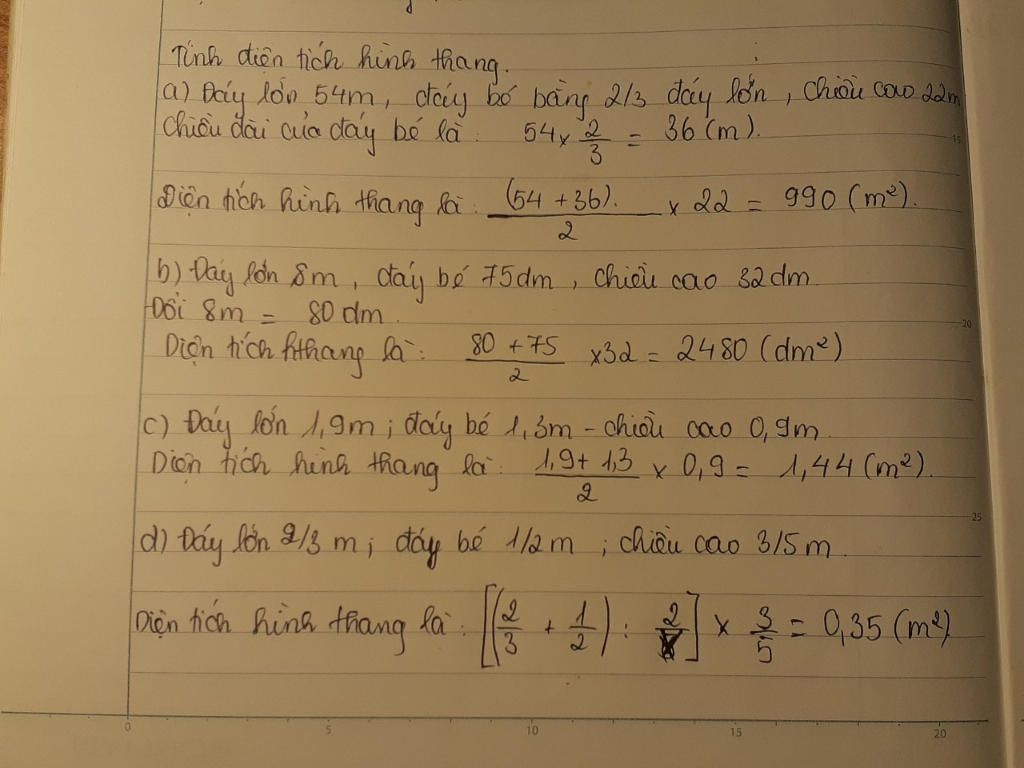 Tính diện tích hình thang.
a) Đáy lớn 54m, đáy bé bằng 2/3 đáy lớn, chiều cao 22m
Chiều dài của đáy bé là: 54 x 2/3 = 36 (m).
Diện tích hình thang là: (54 + 36)/2 x 22 = 990 (m²).
b) Đáy lớn 8m, đáy bé 75dm, chiều cao 32dm
Đổi 8m = 80 dm.
Diện tích hthang là: 80 + 75/2 x32 = 2480 (dm²)
c) Đáy lớn 1,9m; đáy bé 1,3m - chiều cao 0,9m
Diện tích hình thang là: 1,9 + 1,3/2 x 0,9 = 1,44 (m²).
d) Đáy lớn 2/3 m; đáy bé 1/2 m; chiều cao 3/5 m
Diện tích hình thang là: [(2/3 + 1/2) : 2] x 3/5 = 0,35 (m²)
0 5 10 15 20
15
20
25